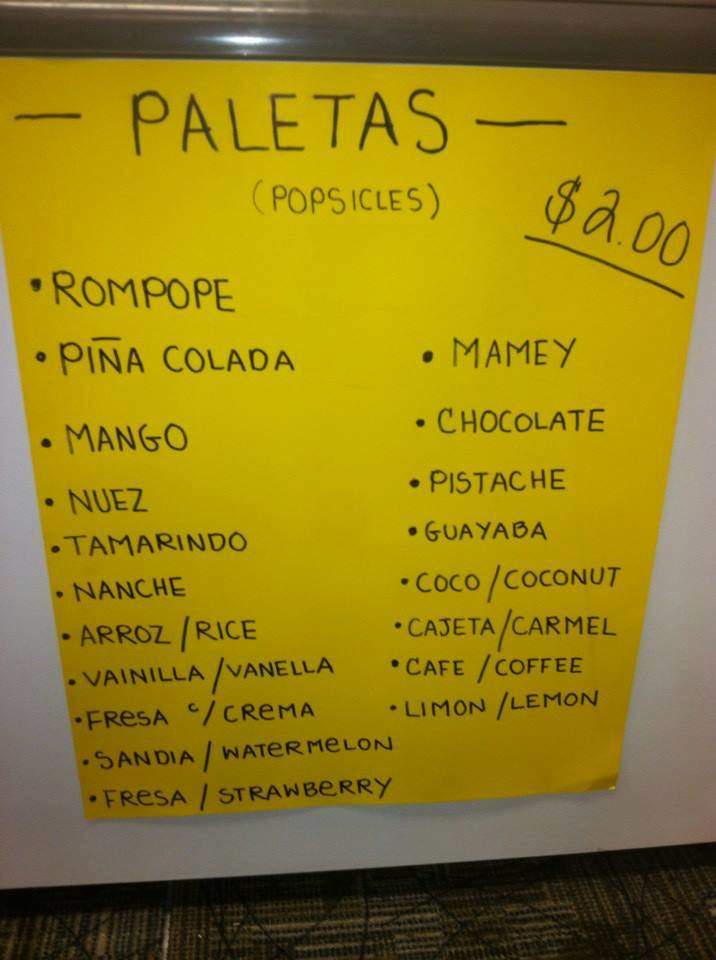 — PALETAS —
(POPSICLES)
$2.00
• ROMPOPE
• PIÑA COLADA
• MANGO
• NUEZ
• TAMARINDO
• NANCHE
• ARROZ / RICE
• VAINILLA / VANELLA
• FRESA c/ CREMA
• SANDIA / WATERMELON
• FRESA / STRAWBERRY
• MAMEY
• CHOCOLATE
• PISTACHE
• GUAYABA
• COCO / COCONUT
• CAJETA / CARMEL
• CAFE / COFFEE
• LIMON / LEMON